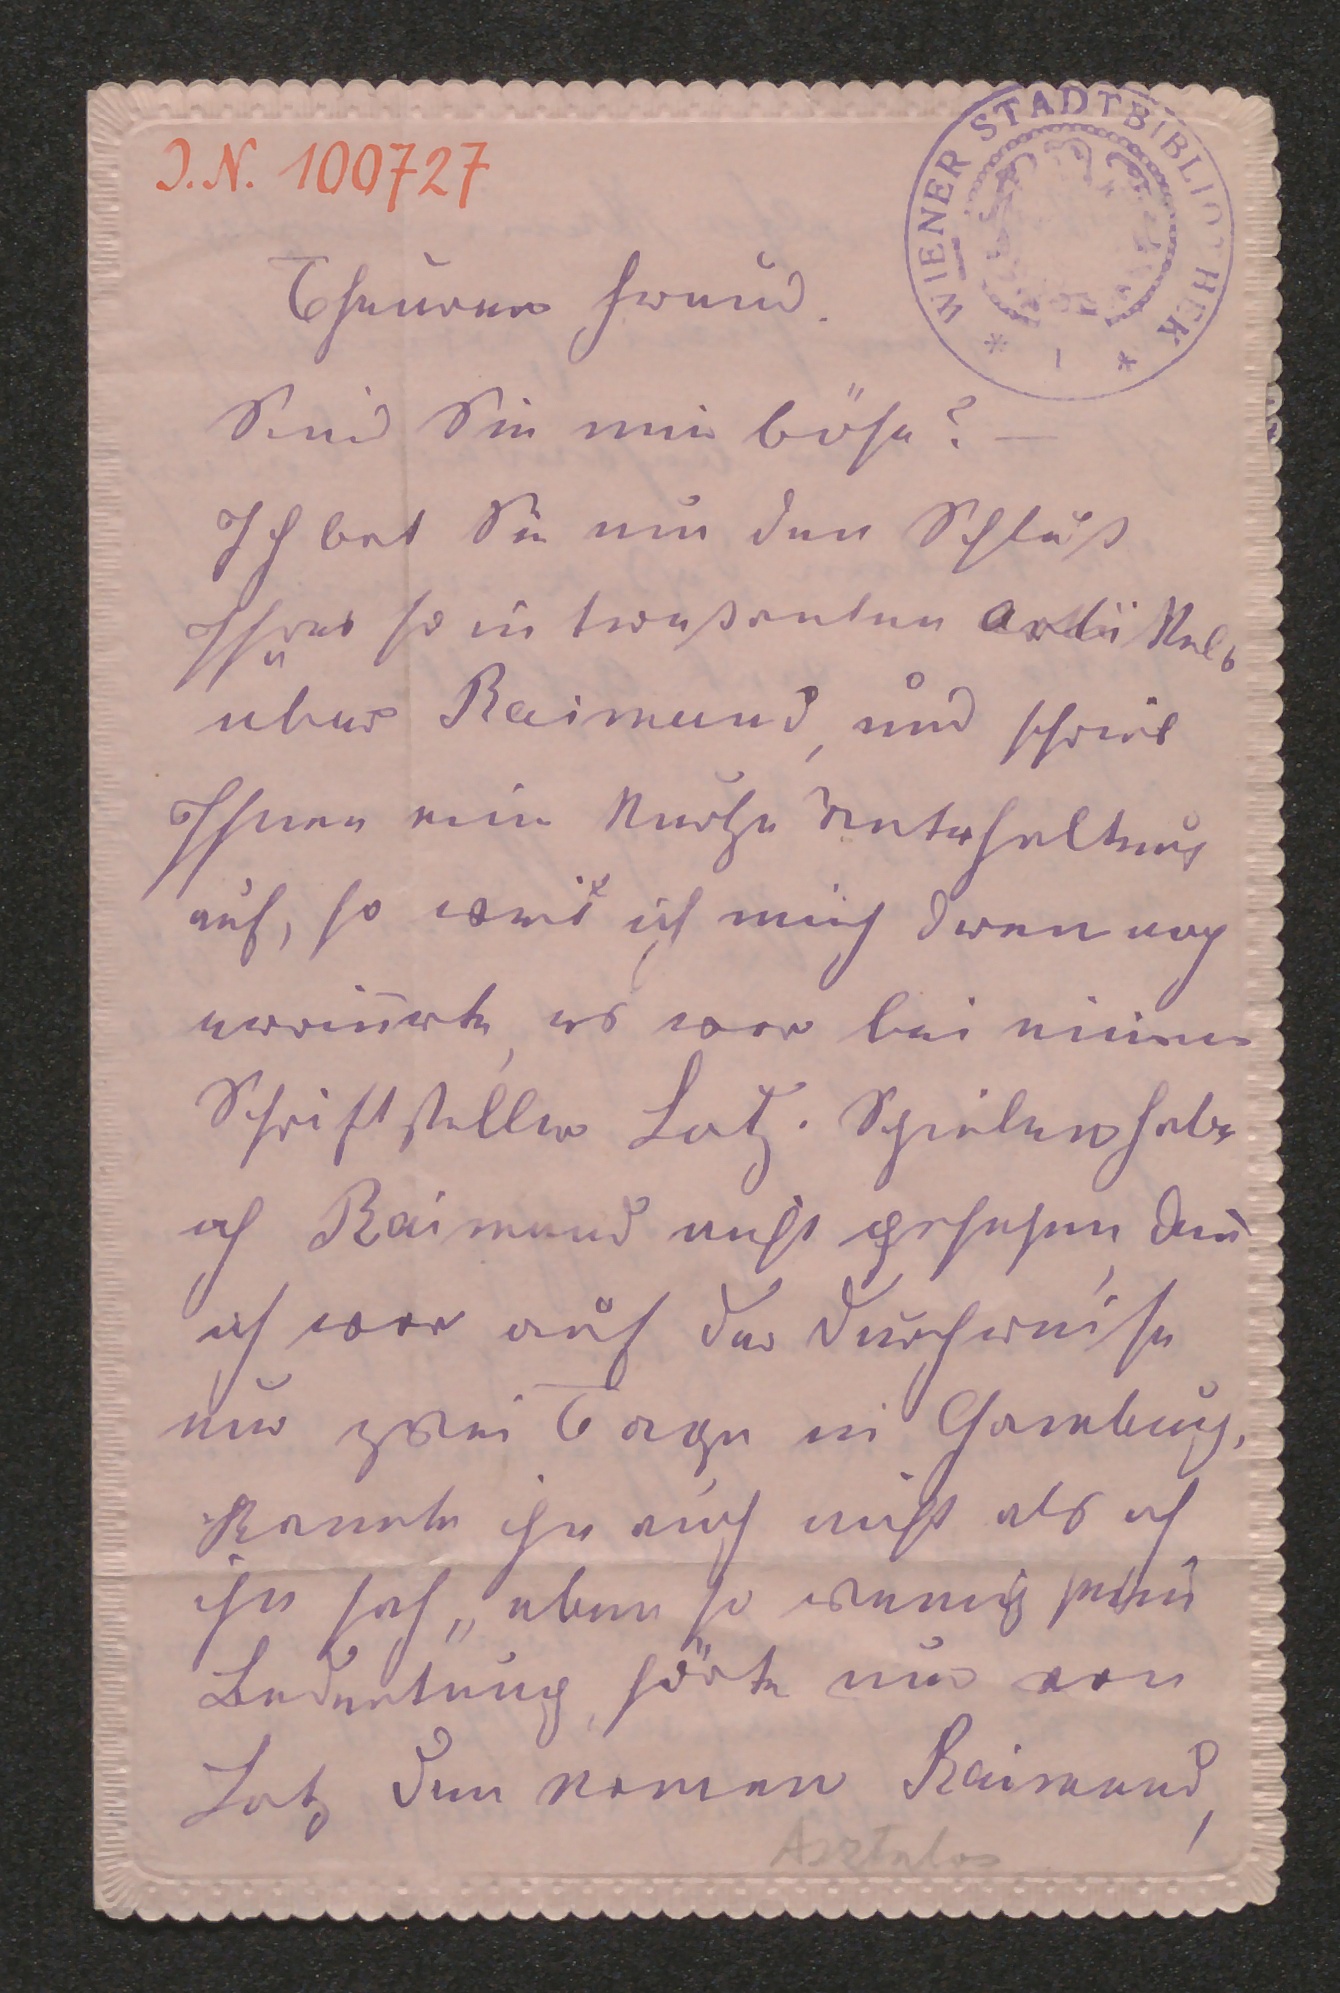 I.N. 100727
WIENER STADTBIBLIOTHEK
Theurer Freund.
Sind Sie mir böse? —
Ich bat Sie um den Schluß
Ihres so intreßanten Artikels
über Raimund, und schrieb
Ihnen eine kurtze Unterhaltung
auf, so weit ich mich deren noch
erinnerte, es war bei einem
Schriftsteller Lotz. Spielen habe
ich Raimund nicht gesehen, denn
ich war auf der Durchreise
nur zwei Tage in Hamburg,
kannte ihn auch nicht als ich
ihn sah, eben so wenig seine
Bedeutung, hörte nur von
Lotz den Namen Raimund,
Asztalos